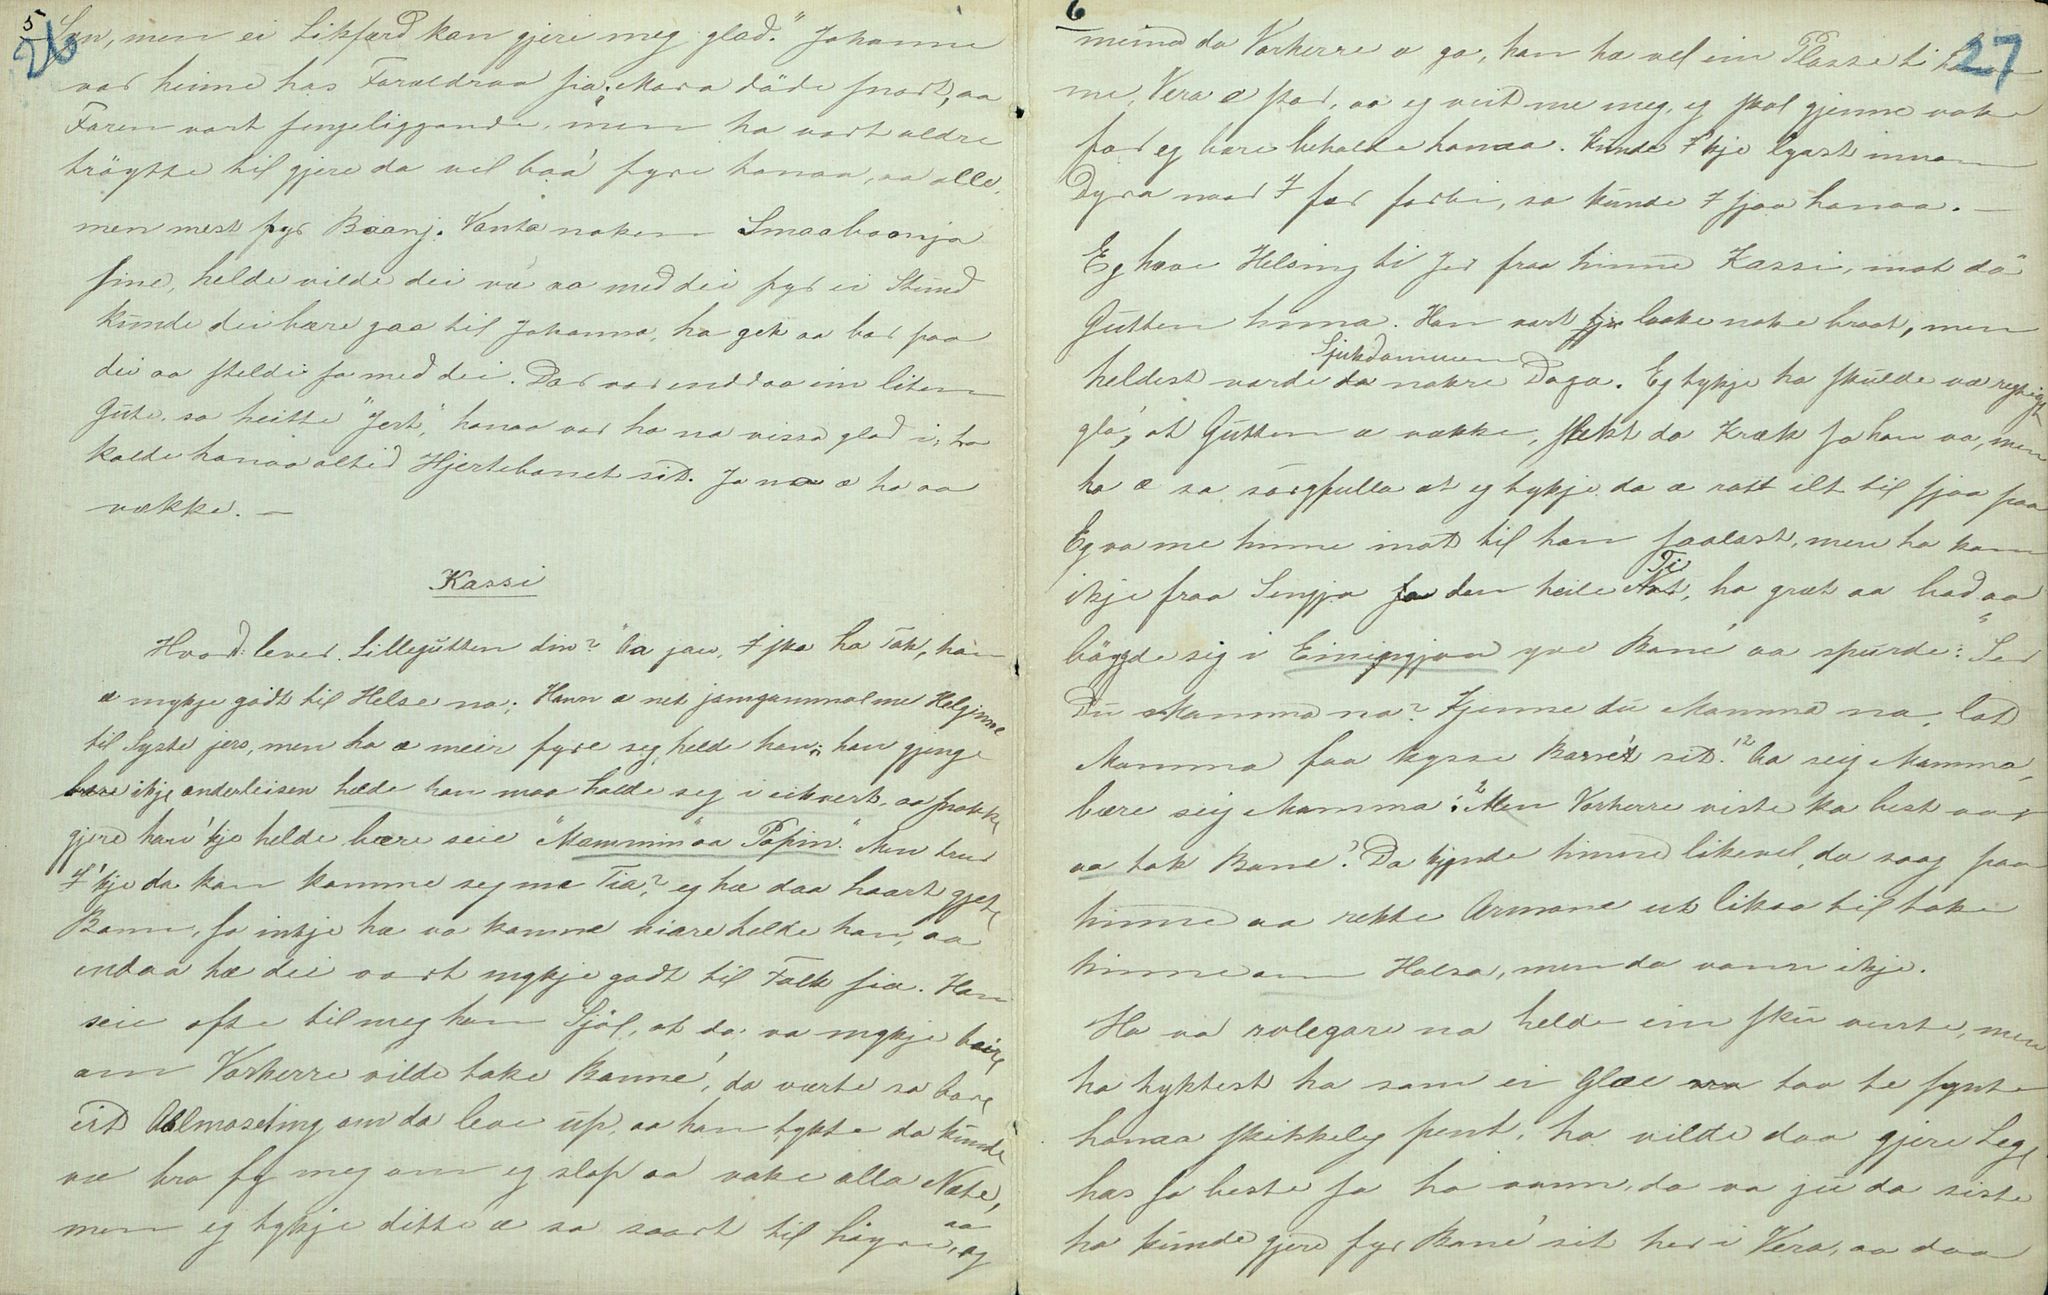 5
26
Løn, men ei Likfærd kan gjere meg glad." Johanne
var heime hos Foraldraa sia. Mora døde snart, aa
Faren vart sengeliggande, men ho vart aldre
trøytte til gjere da vel baa' fyre honaa, aa alle,
men mest fyr Baanj. Vanta noken Smaabaanja
sine, helde vilde dei væ aa med dei fyr ei Stund
kunde dei bære gaa til Johanna, ho gek aa bar paa
dei aa stelde so med dei. Dar var enddaa ein liten
Gute, so heitte "Jert", honaa var ho no vissa glad i, ho
kalde honaa altid Hjertebonet sit. Ja no æ ho aa
vække. —
Kassi
Hvord: lever Lillegutten din? "Aa jau, I ska ha Tak, han
æ mykje godt til Helse no; Hann æ net jamgammal me Helginne
til Syste jers, men ho æ meir fyre seg helde han; han gjenge
bære ikje anderleisen helde han maa halde seg i eikvert, aa snakke
gjere han 'kje helde bære seie "Mammin" aa "Papin." Men trur
I 'kje da kan komme seg me Tia? eg hæ daa haart gjete
Bann, so inkje hæ va komne viare helde han, aa
endaa hæ dei vart mykje godt til Folk sia. Han
seie ofte til meg han Sjøl, at da va mykje beire
om Vorherre vilde take Banne', da værte so bare
eit Aalmoseting om da leve up, aa han tykte da kunde
væ bra fy meg om eg slap aa vake alla Næte,
men eg tykje ditte æ so saart til høyre, aa eg
6
27
meina da Vorherre æ go, han hæ vel ein Plasse ti
me, Vera æ stor, aa eg veit me meg, eg skal gjenne vake
far eg bare behalde honaa. Kunde I 'kje lyast innom
Dyra naar I far forbi, so kunde I sjaa honaa. —
Eg have Helsing ti Jer fraa hinne Kassi, mot dø
Gutten hinna. Han vart laake noke braat, men
heldest varde da Sjukdommen nokre Daga. Eg tykje ho skulde væ regtigt
gla', at Gutten æ vække, slekt da Kræk so han va, men
ho æ so sørgfulla at eg tykje da æ ratt ilt til sjaa paa
Eg va me hinne inat til han saalast, men ho kom
ikje fraa Sengja den heile Ti, ho græt aa bad aa
bøygde sig i Einingjaa yve Bane' aa spurde: "Ser
Du Mamma no? Kjenne du Mamma no, lat
Mamma faa kysse Barnet sit." "Aa seig Mamma,
bære seig Mamma." Men Vorherre viste ka best var
aa tok Bane'. Da kjende hinne likevel, da saag paa
hinne aa rekte Armane ut likso til take
hinne om Halsa, men da vann ikje.
Ho va rolegare no helde ein sku vente, men
ho tyktest ha som ei Glæe taa te synte
honaa skikkeleg pent, ho vilde daa gjere Legje
has so beste so ho vann, da va ju da siste
ho kunde gjere fyr Bane' sit her i Vera, aa daa